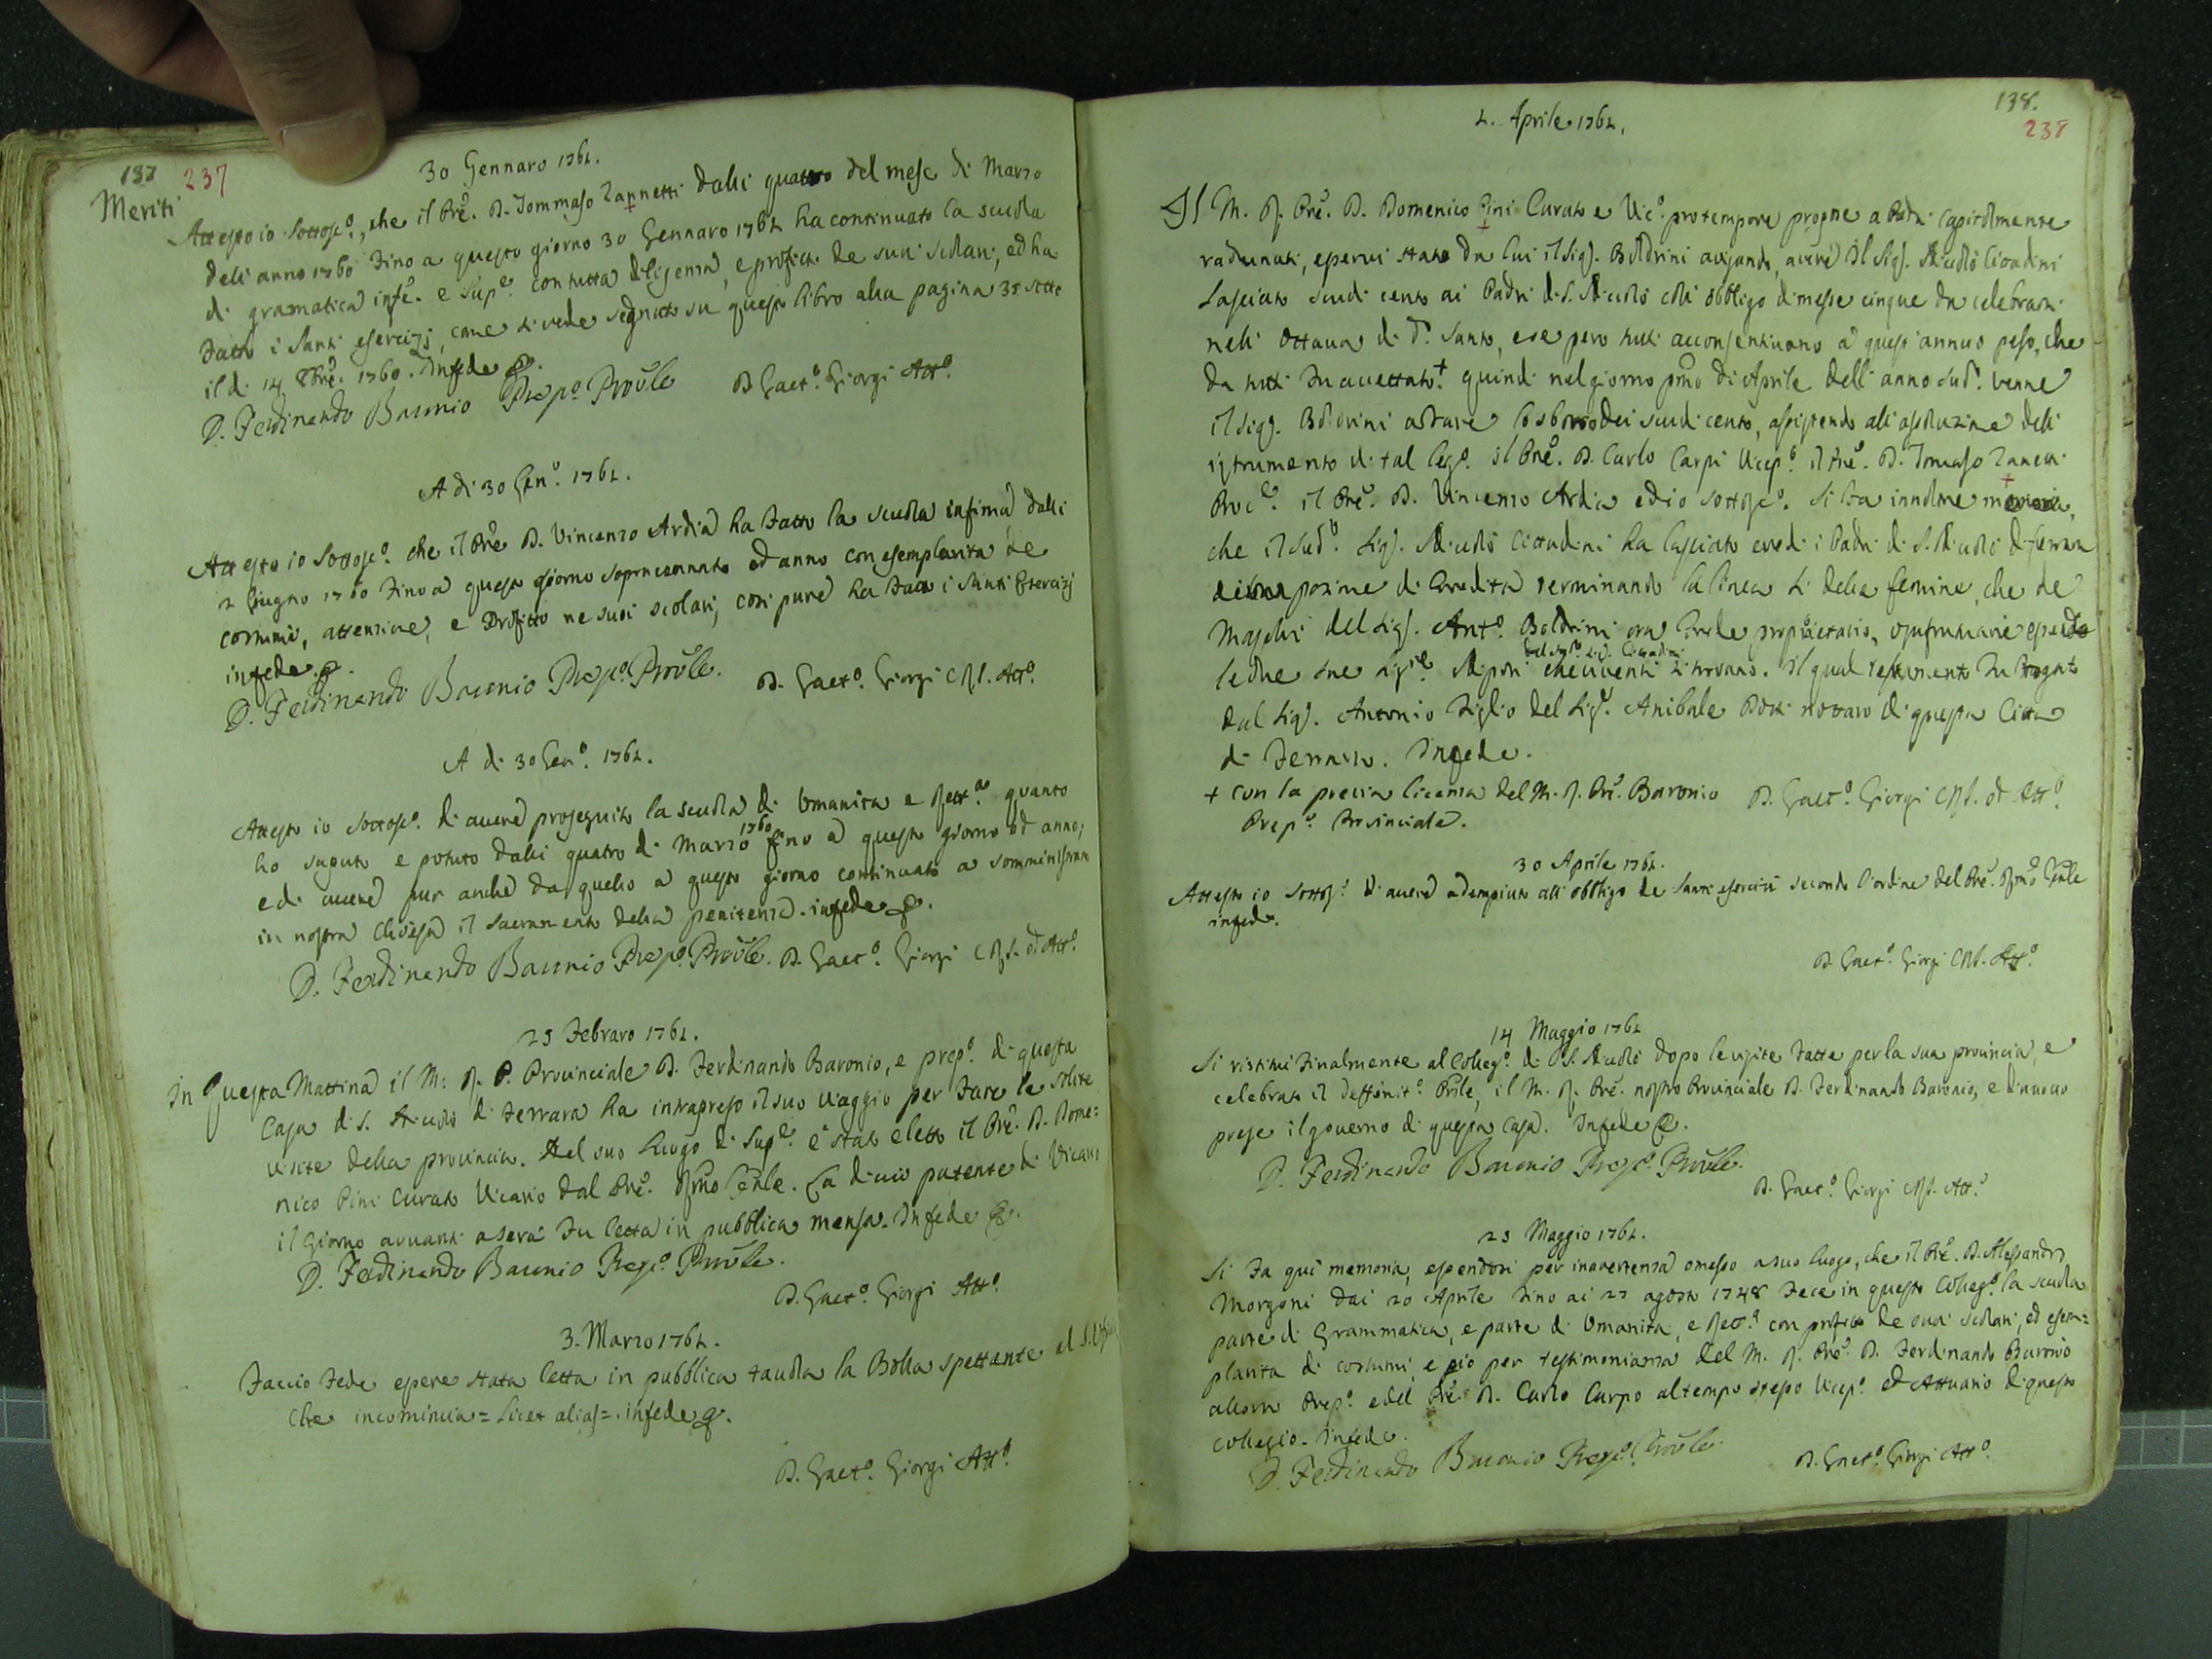 137 237
Meriti
30 Gennaro 1762.
Attesto io Sottosc.º, che il Prê. D. Tommaso Zannetti dalli quattro del mese di Marzo
dell'anno 1760 fino a questo giorno 30 Gennaro 1762 ha continuato la scuola
di gramatica infê. e Supê. con tutta diligenza, e profitto de suoi scolari, ed ha
fatto i Santi esercizj, come si vede segnato su questo libro alla pagina 35 sotto
il di 14 1760. Infede
D. Ferdinando Baronio Prep.º Prõvle D. Gaet.º Giorgi Att.º
A di 30 Gen.º 1762.
Attesto io Sottosc.º che il Prê D. Vincenzo Ardia ha fatto la scuola infima dalli
2 Giugno 1760 fino a questo giorno sopracennato ed anno con esemplarità de
costumi, attenzione, e Profitto ne suoi scolari, così pure ha fatto i Santi Esercizj
infede.
D. Ferdinando Baronio Prep.º Prõvle. D. Gaet.º Giorgi CRS. Att.º
A di 30 Gen.º 1762.
Attesto io Sottosc.º di avere proseguito la scuola di Umanità e Rett.ca quanto
ho saputo e potuto dalli quatro di Marzo 1760 fino a questo giorno ed anno;
e di avere pur anche da quello a questo giorno continuato a somministrare
in nostra Chiesa il sacramento della penitenza. infede
D. Ferdinando Baronio Prep.º Prõvle. D. Gaet.º Giorgi CRS. ed Att.º
25 Febraro 1762.
In Questa Mattina il M: R. P. Provinciale D. Ferdinando Baronio, e prep.º di questa
Casa di S. Nicolò di Ferrara ha intrapreso il suo viaggio per fare le solite
visite della provincia. Nel suo luogo di Supê. è stato eletto il Prê. D. Dome=
nico Pini Curato Vicario dal Prê. Rmo Genle. La di cui patente di Vicario
il giorno avvanti a sera fu letta in pubblica mensa. Infede
D. Ferdinando Baronio Prep.º Prõvle.
D. Gaet.º Giorgi Att.º
3. Marzo 1762.
Faccio fede essere stata letta in pubblica tavola la Bolla spettante al S.
che incomincia= Licet alias=. infede
D. Gaet.º Giorgi Att.º
138.
238
2. Aprile 1762.
Il M. R. Prê. D. Domenico Pini Curato e Vic.º protempore propose a Padri Capitolmente
radunati, esservi stato da lui il Sig. Boldrini avisando, avere Il Sig. Nicolò Cittadini
Lasciato scudi cento ai Padri di S. Nicolò coll' obbligo di messe cinque da celebrarsi
nell' Ottava di d. Santo, e se però tutti acconsentivano a quest' annuo peso, che
da tutti fu accettato.+ quindi nel giorno pmo di Aprile dell' anno sud. venne
il Sig. Boldrini a dare lo sborso dei scudi cento, assistendo all'
istrumento di tal lego. il Prê. D. Carlo Carpi Vicep.º il Prê. D. Tomaso Zanetti
Proc.e il Prê. D. Vincenzo Ardia ed io sottosc.º. Si fa innoltre memoria,
che il Sud.º Sig. Nicolò Cittadini ha lasciato eredi i Padri di S. Nicolò di Ferrara
di porzione di eredità terminando la linea sì delle femine, che de
Maschi del Sig. Ant.º Boldrini ora Erede proprietario, usufrutuarie essendo
le due sue Nipoti che viventi si trovano. Il qual testamento fu rogato
dal Sig. Antonio figlio del Sig. Anibale notaro di questa Città
di Ferrara. Infede.
+ con la previa licenza del M. R. Prê. Baronio D. Gaet.º Giorgi CRS. ed Att.º
Prep.º Provinciale.
30 Aprile 1762.
Attesto io Sottos.º di avere adempiuto all' obbligo de Santi esercizii secondo l'ordine del Prê. Rmo Genle
infede.
D. Gaet.º Giorgi CRS. Att.º
14 Maggio 1762
Si ristituì finalmente al Colleg.º di S. Nicolò dopo le visite fatte per la sua provincia, e
celebrato il Deffinit.º il M. R. Prê. nostro Provinciale D. Ferdinando Baronio, e di nuovo
prese il governo di questa casa. Infede
D. Ferdinando Baronio Prep.º Prõvle.
D. Gaet.º Giorgi CRS. Att.º
23 Maggio 1762.
Si fa qui memoria, essendosi per inavertenza omesso a suo luogo, che il Prê. D. Alessandro
Morgoni dai 20 Aprile fino ai 27 agosto 1748 fece in questo Colleg.º la scuola
parte di Grammatica, e parte di Umanità, e Rett.ca con profitto de suoi scolari, ed esem=
plarità di costumi, e ciò per testimonianza del M. R. Prê. D. Ferdinando Baronio
allora Prep.º e del Prê. D. Carlo Carpo al tempo stesso Vicep.º ed Attuario di questo
collegio. Infede.
D. Ferdinando Baronio Prep.º Prõvle. D. Gaet.º Giorgi Att.º